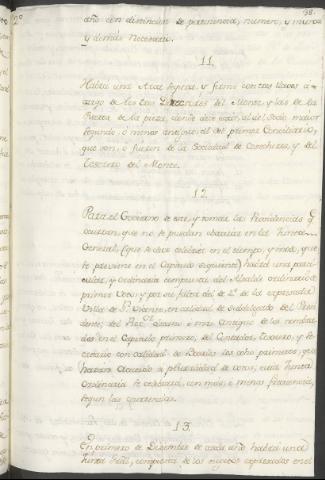 38.
año con distincion de pertenencia, numero, y
y demás necesario.
11.
Habrá una Arca segura, y firme con tres llaves á
cargo de los tres del Monte, y las de las
Puertas de la pieza, donde debe estar, al del Socio mayor
segundo, ó menos antiguo, al del primer Conciliario,
que son, ó fueren de la Sociedad de Cosecheros, y del
Tesorero del Monte.
12.
Para el Govierno de este, y tomar las Providencias q.
ocurran, que no se puedan abarcar en la Junta
General, (que se debe celebrar en el tiempo, y modo, que
se previene en el Capitulo siguiente) habrá una parti-
cular, y ordinaria compuesta del Alcalde ordinario de
primer Voto, y por su falta del de 2.º de la expresada
Villa de en calidad de Subdelegado del Presi-
dente; del mas Antiguo de los nombra-
dos en el Capitulo primero, del Contador, Tesorero, y Se-
cretario con calidad de Vocales los ocho primeros, que
harán Acuerdo á pluralidad de votos, cuia Junta
Ordinaria se celebrará, con más, ó menos frecuencia,
segun las ocurrencias.
13.
En primero de Diziembre de cada año habrá una
Junta Gral, compuesta de los sugetos expresados en el